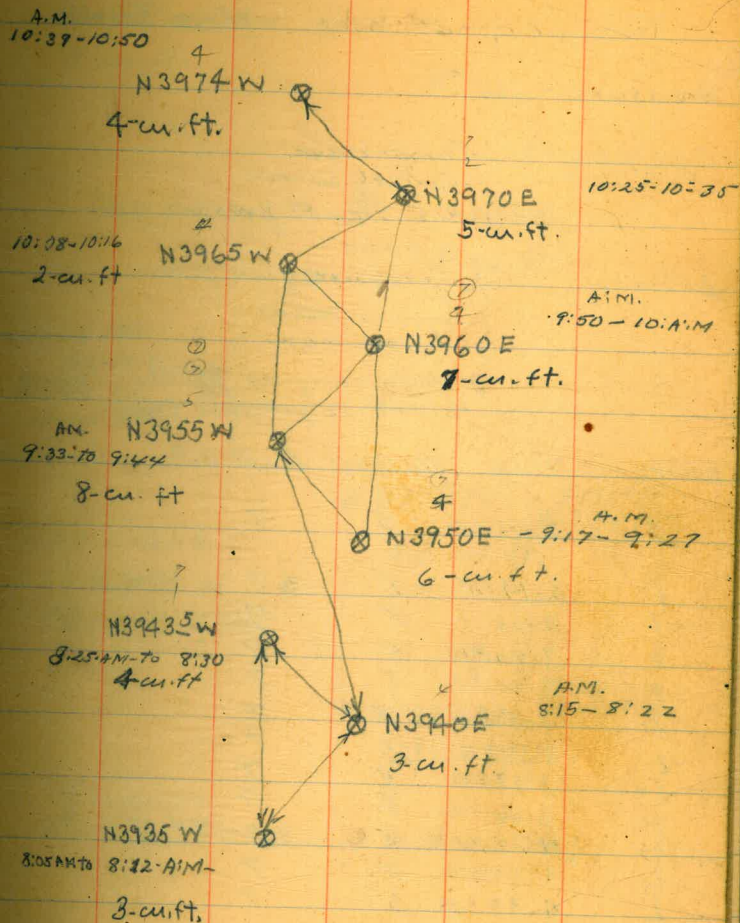 A.M.
10:39-10:50
4
N3974 W
4-cu.ft.
2
N3970E 10:25-10-35
5-cu.ft.
10:08-10:16
2-cu.ft
4
N3965 W
7
A.M.
9:50-10:A.M
N3960E
7-cu.ft.
5
A.M. N3955 W
9:33-to 9:44
8-cu. ft
4
A.M.
N3950E - 9:17-9:27
6-cu.ft.
7
N3943 5 W
8:25-AM-to 8:30
4-cu.ft
A.M.
8:15-8:22
N3940E
3-cu.ft.
N3935 W
8:05 AM to 8:12-A.M-
3-cu.ft.